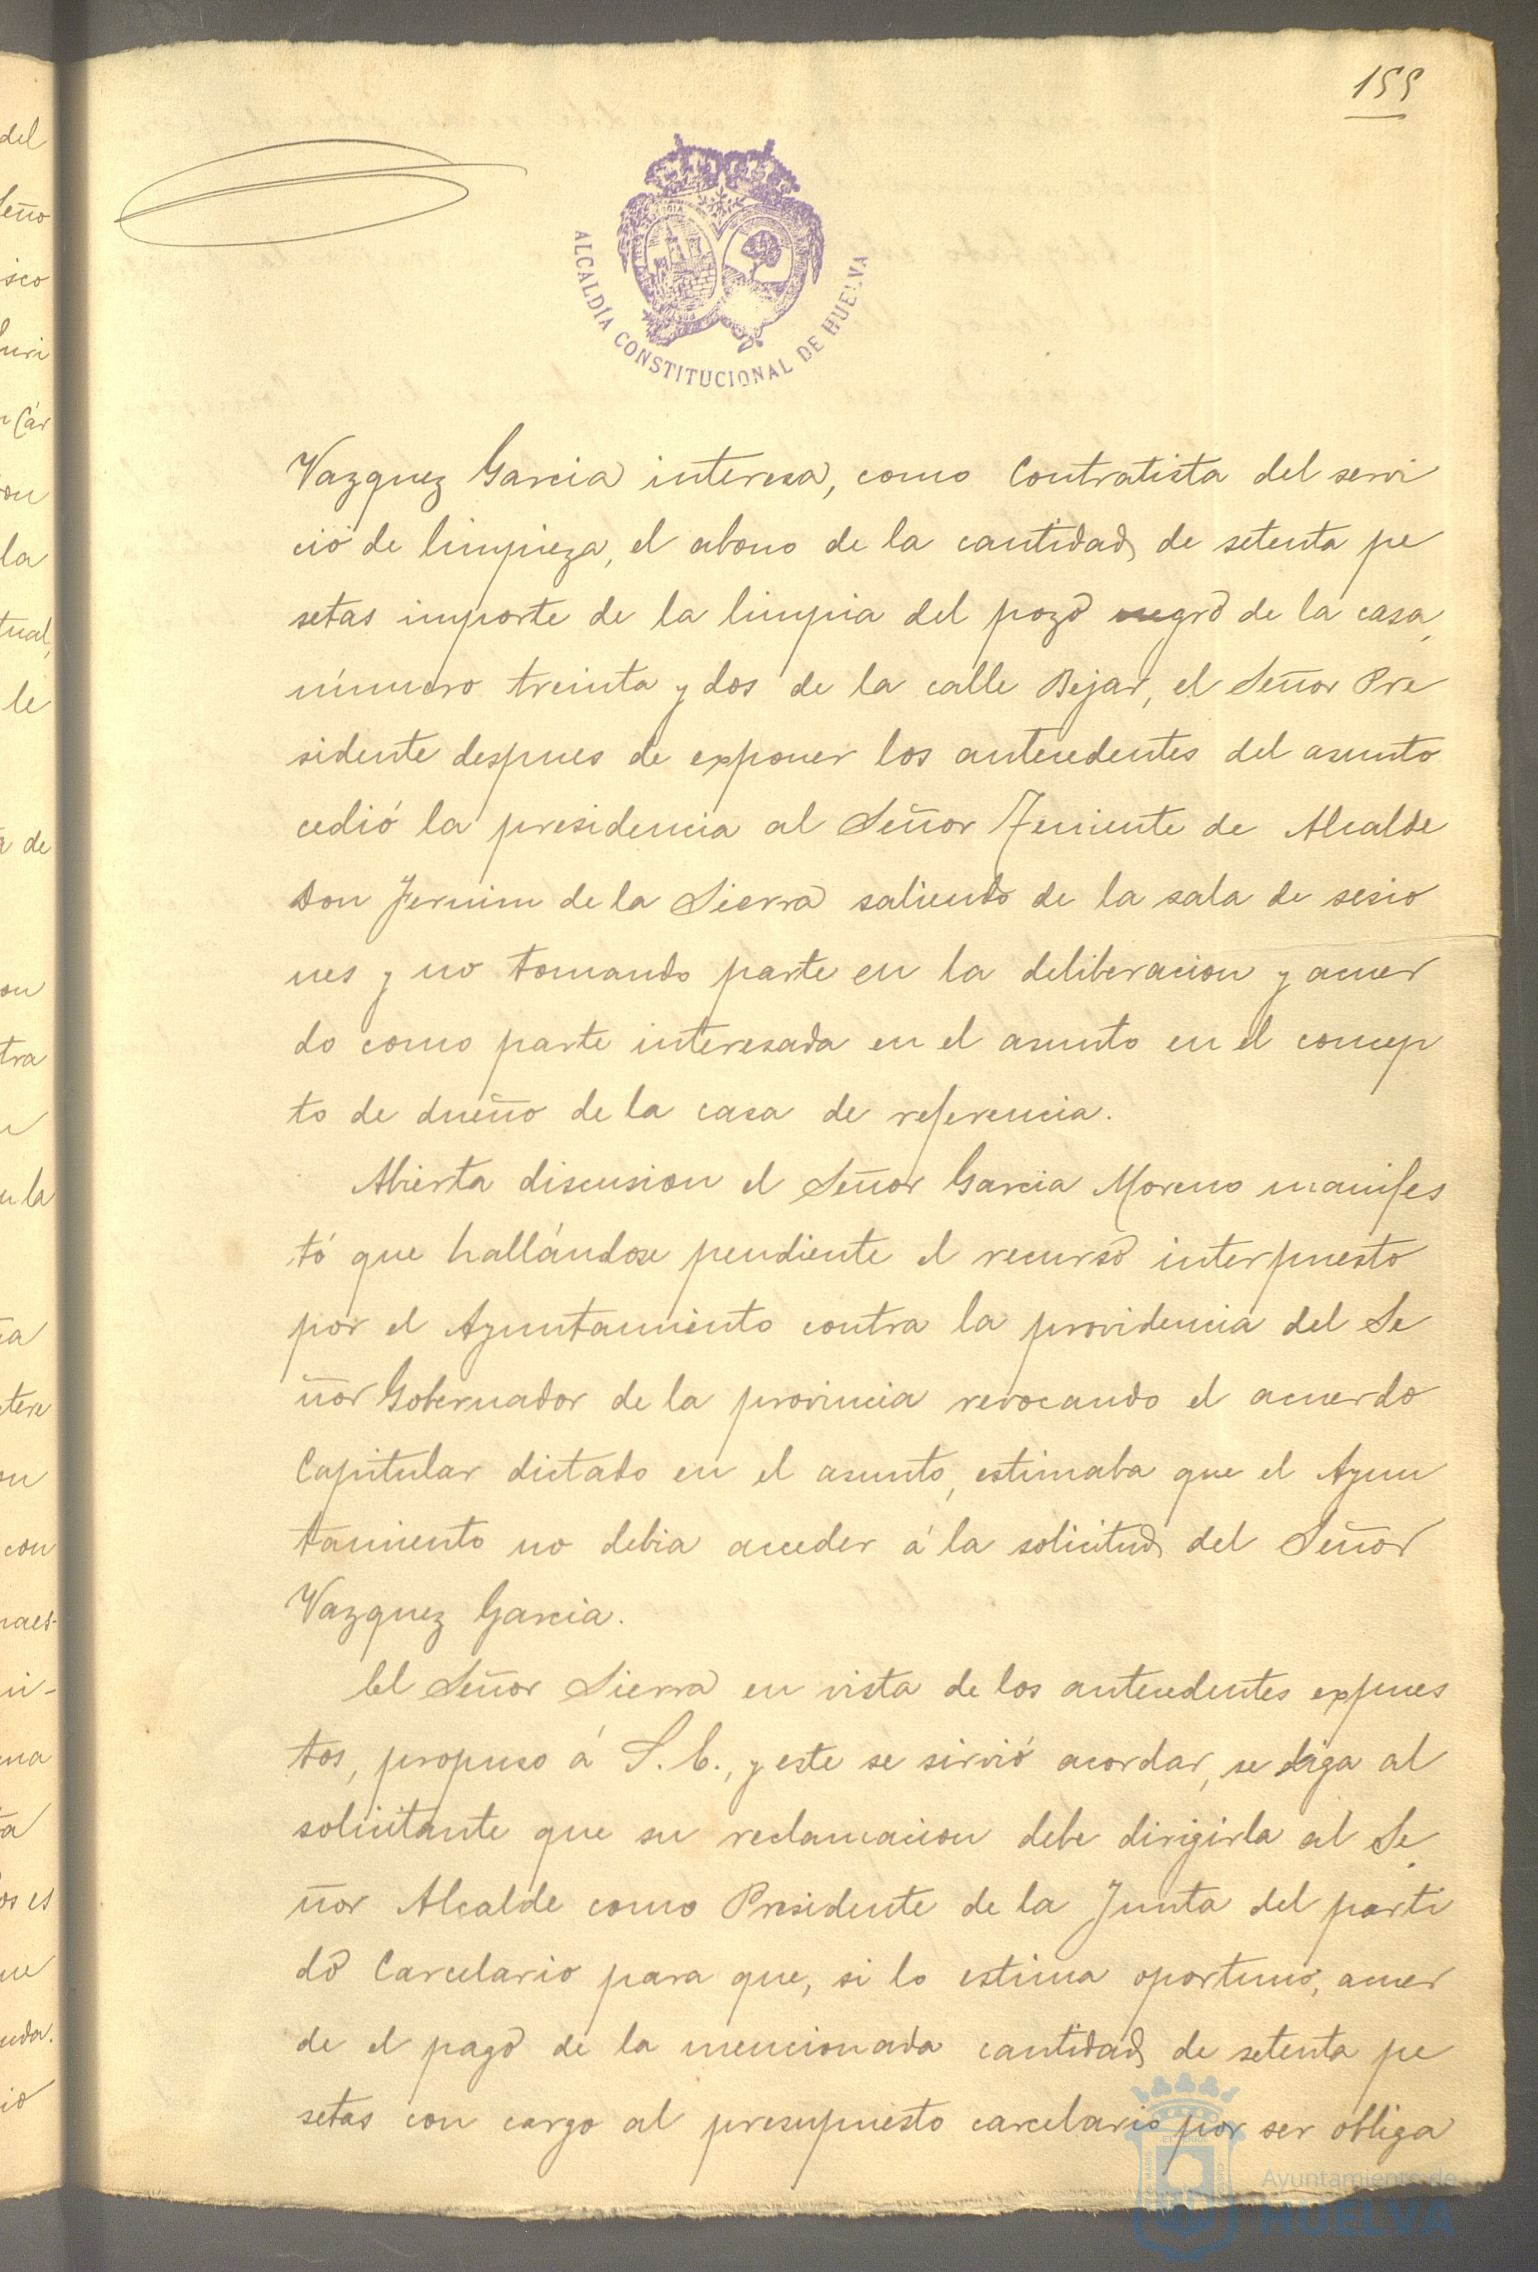 155
ALCALDÍA CONSTITUCIONAL DE HUELVA
Vazquez Garcia interesa, como Contratista del servi
cio de limpieza, el abono de la cantidad de setenta pe
setas importe de la limpia del pozo negro de la casa
número treinta y dos de la calle Bejar, el Señor Pre
sidente despues de exponer los antecedentes del asunto
cedió la presidencia al Señor Teniente de Alcalde
Don Jernim de la Sierra saliendo de la sala de sesio
nes y no tomando parte en la deliberacion y acuer
do como parte interesada en el asunto en el concep
to de dueño de la casa de referencia.
Abierta discusion el Señor Garcia Moreno manifes
tó que hallándose pendiente el recurso interpuesto
por el Ayuntamiento contra la providencia del Se
ñor Gobernador de la provincia revocando el acuerdo
Capitular dictado en el asunto, estimaba que el Ayun
tamiento no debia acceder á la solicitud del Señor
Vazquez Garcia.
El Señor Sierra en vista de los antecedentes expues
tos, propuso á S. E., y este se sirvió acordar, se diga al
solicitante que su reclamacion debe dirigirla al Se
ñor Alcalde como Presidente de la Junta del parti
do Carcelario para que, si lo estima oportuno, acuer
de el pago de la mencionada cantidad de setenta pe
setas con cargo al presupuesto carcelario por ser obliga
Ayuntamiento de
HUELVA
del
Seño
isco
Cár
la
tual,
le
de
tra
con